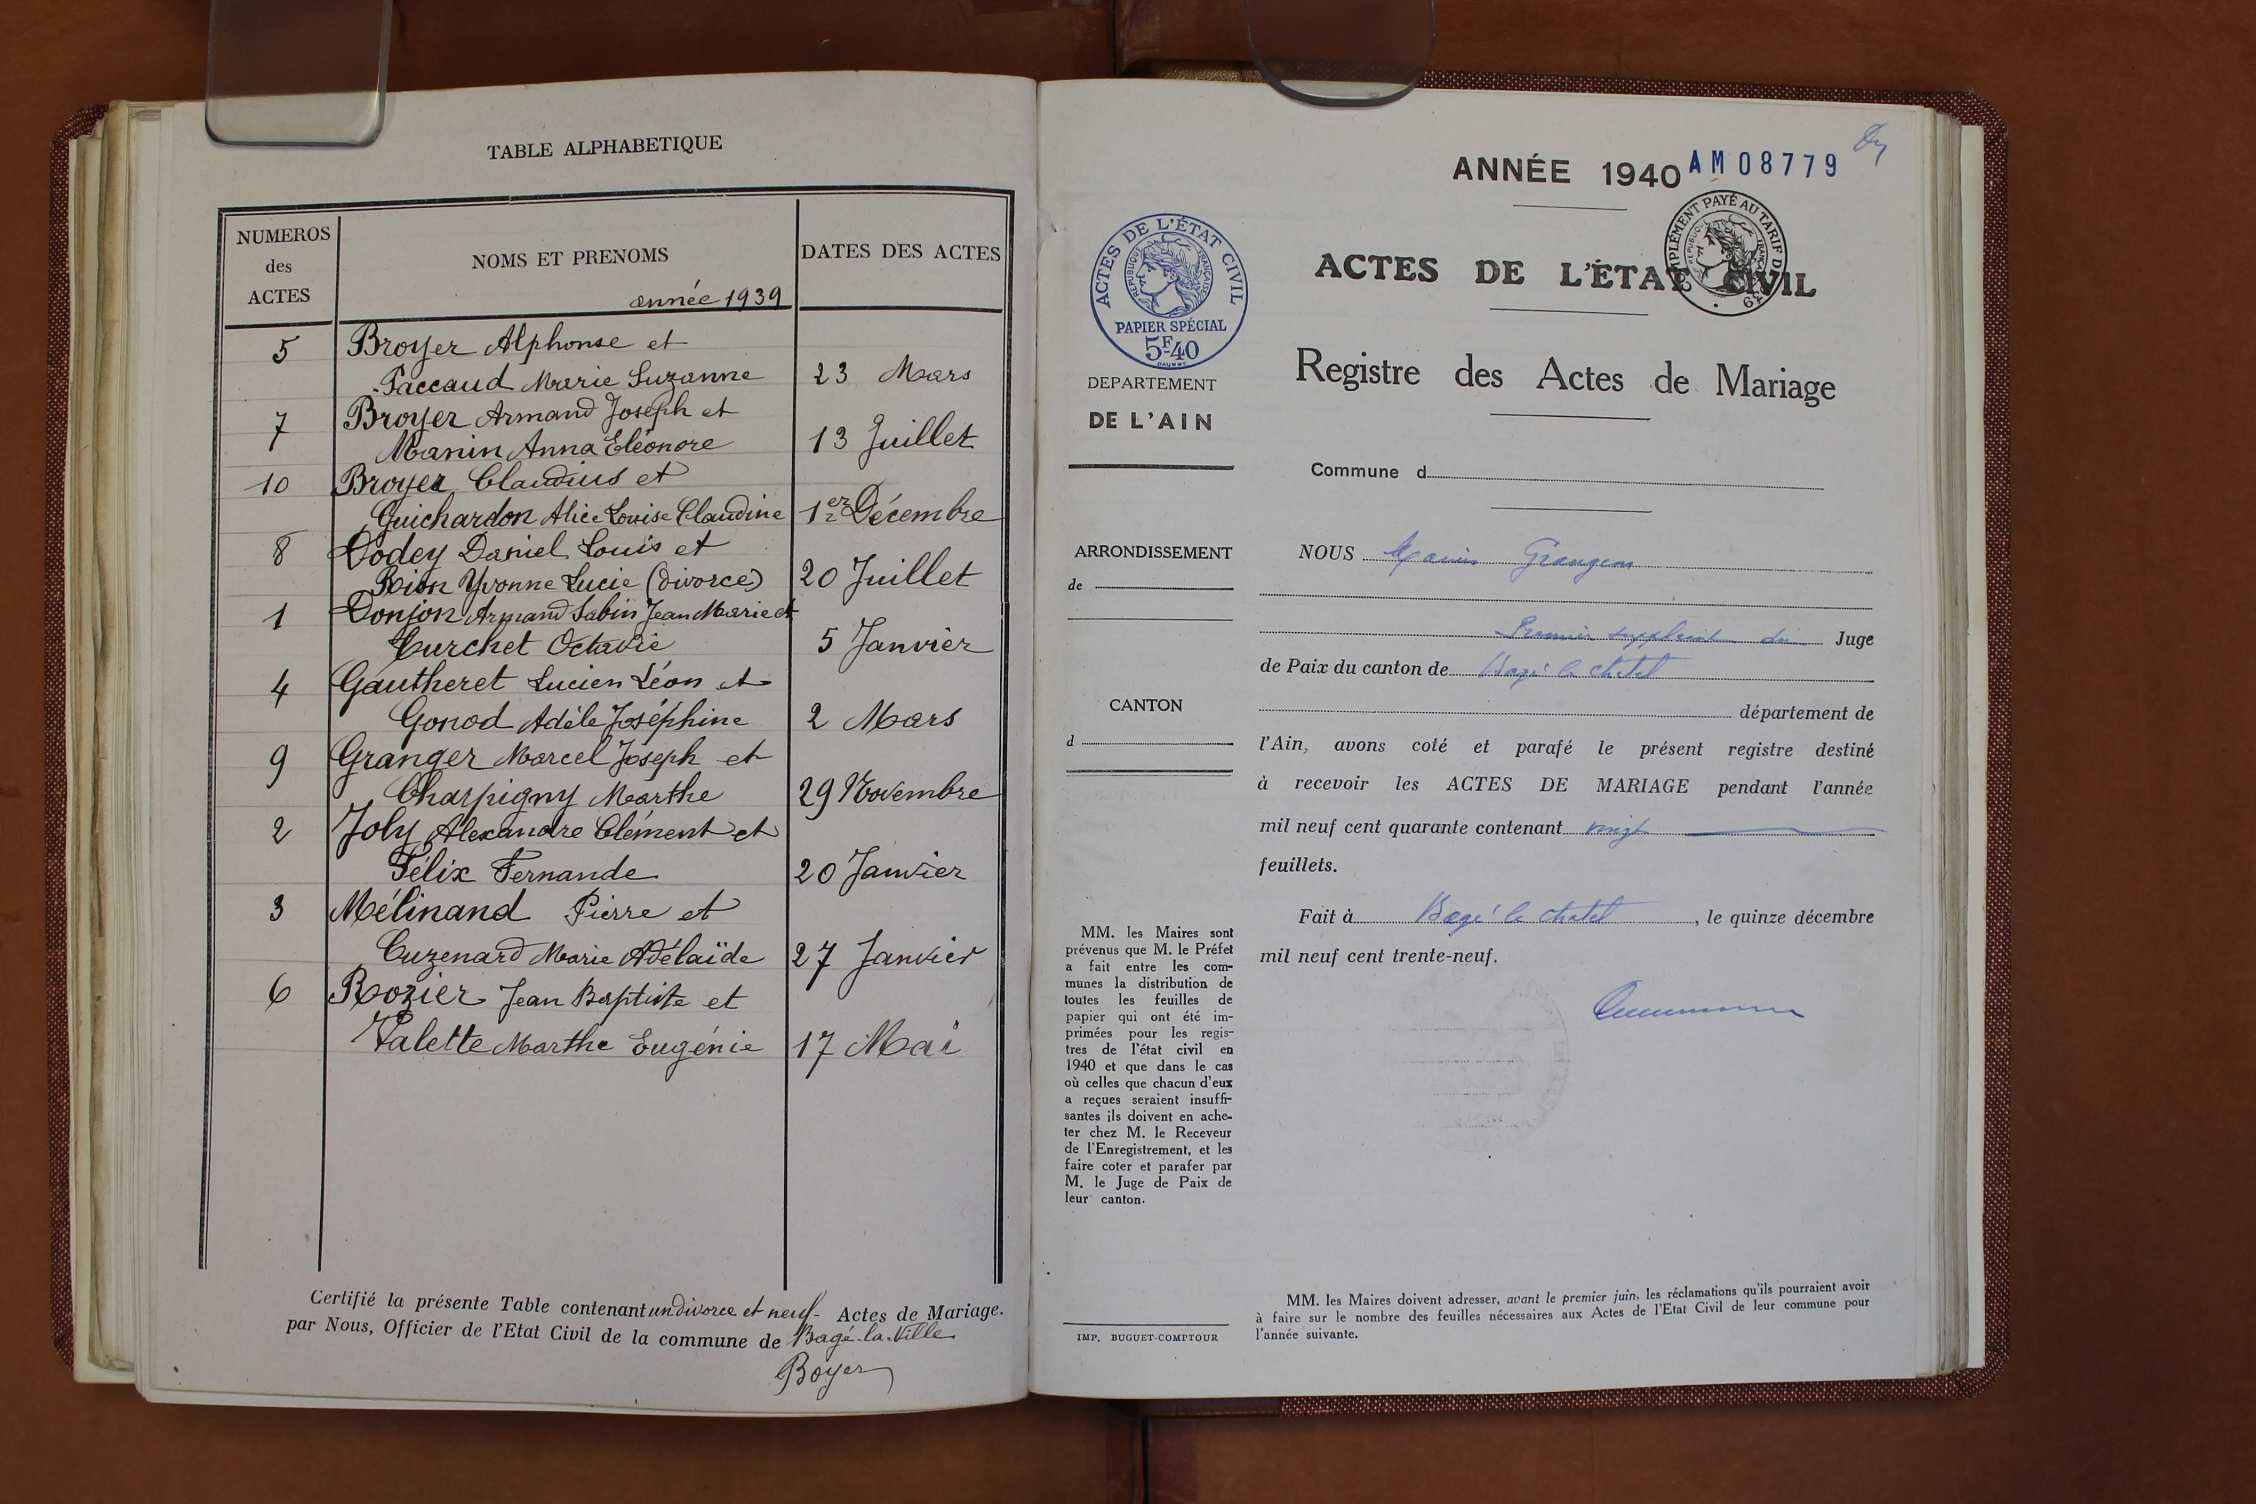 TABLE ALPHABETIQUE
NUMEROS
des
ACTES
NOMS ET PRENOMS
année 1939
DATES DES ACTES
5 Broyer Alphonse et
Paccaud Marie Suzanne 23 Mars
7 Broyer Armand Joseph et
Manin Anna Eléonore 13 Juillet
10 Broyer Claudius et
Guichardon Alice Louise Claudine 1er Décembre
8 Dodey Daniel Louis et
Rion Yvonne Lucie (divorce) 20 Juillet
1 Donjon Armand Sabin Jean Marie et
Curchet Octavie 5 Janvier
4 Gautheret Lucien Léon et
Gonod Adèle Joséphine 2 Mars
9 Granger Marcel Joseph et
Charpigny Marthe 29 Novembre
2 Joly Alexandre Clément et
Félix Fernande 20 Janvier
3 Mélinand Pierre et
Cuzenard Marie Adélaïde 27 Janvier
6 Rozier Jean Baptiste et
Valette Marthe Eugénie 17 Mai
Certifié la présente Table contenant un divorce et neuf - Actes de Mariage.
par Nous, Officier de l'Etat Civil de la commune de Bagé-la-Ville
Boyer
ANNÉE 1940 AM08779
ACTES DE L'ÉTAT CIVIL
RÉPUBLIQUE FRANÇAISE
PAPIER SPÉCIAL
5F.40
COMPLÉMENT PAYÉ AU TARIF DE 1939
RÉPUBLIQUE FRANÇAISE
ACTES DE L'ÉTAT CIVIL
Registre des Actes de Mariage
DEPARTEMENT
DE L'AIN
Commune d
ARRONDISSEMENT
de
CANTON
d
NOUS
Premier suppléant du Juge
de Paix du canton de Bagé le Chatel
département de
l'Ain, avons coté et parafé le présent registre destiné
à recevoir les ACTES DE MARIAGE pendant l'année
mil neuf cent quarante contenant vingt
feuillets.
Fait à Bagé le Chatel, le quinze décembre
mil neuf cent trente-neuf.
MM. les Maires sont
prévenus que M. le Préfet
a fait entre les com-
munes la distribution de
toutes les feuilles de
papier qui ont été im-
primées pour les regis-
tres de l'état civil en
1940 et que dans le cas
où celles que chacun d'eux
a reçues seraient insuffi-
santes ils doivent en ache-
ter chez M. le Receveur
de l'Enregistrement, et les
faire coter et parafer par
M. le Juge de Paix de
leur canton.
IMP. BUGUET-COMPTOUR
MM. les Maires doivent adresser, avant le premier juin, les réclamations qu'ils pourraient avoir
à faire sur le nombre des feuilles nécessaires aux Actes de l'Etat Civil de leur commune pour
l'année suivante.